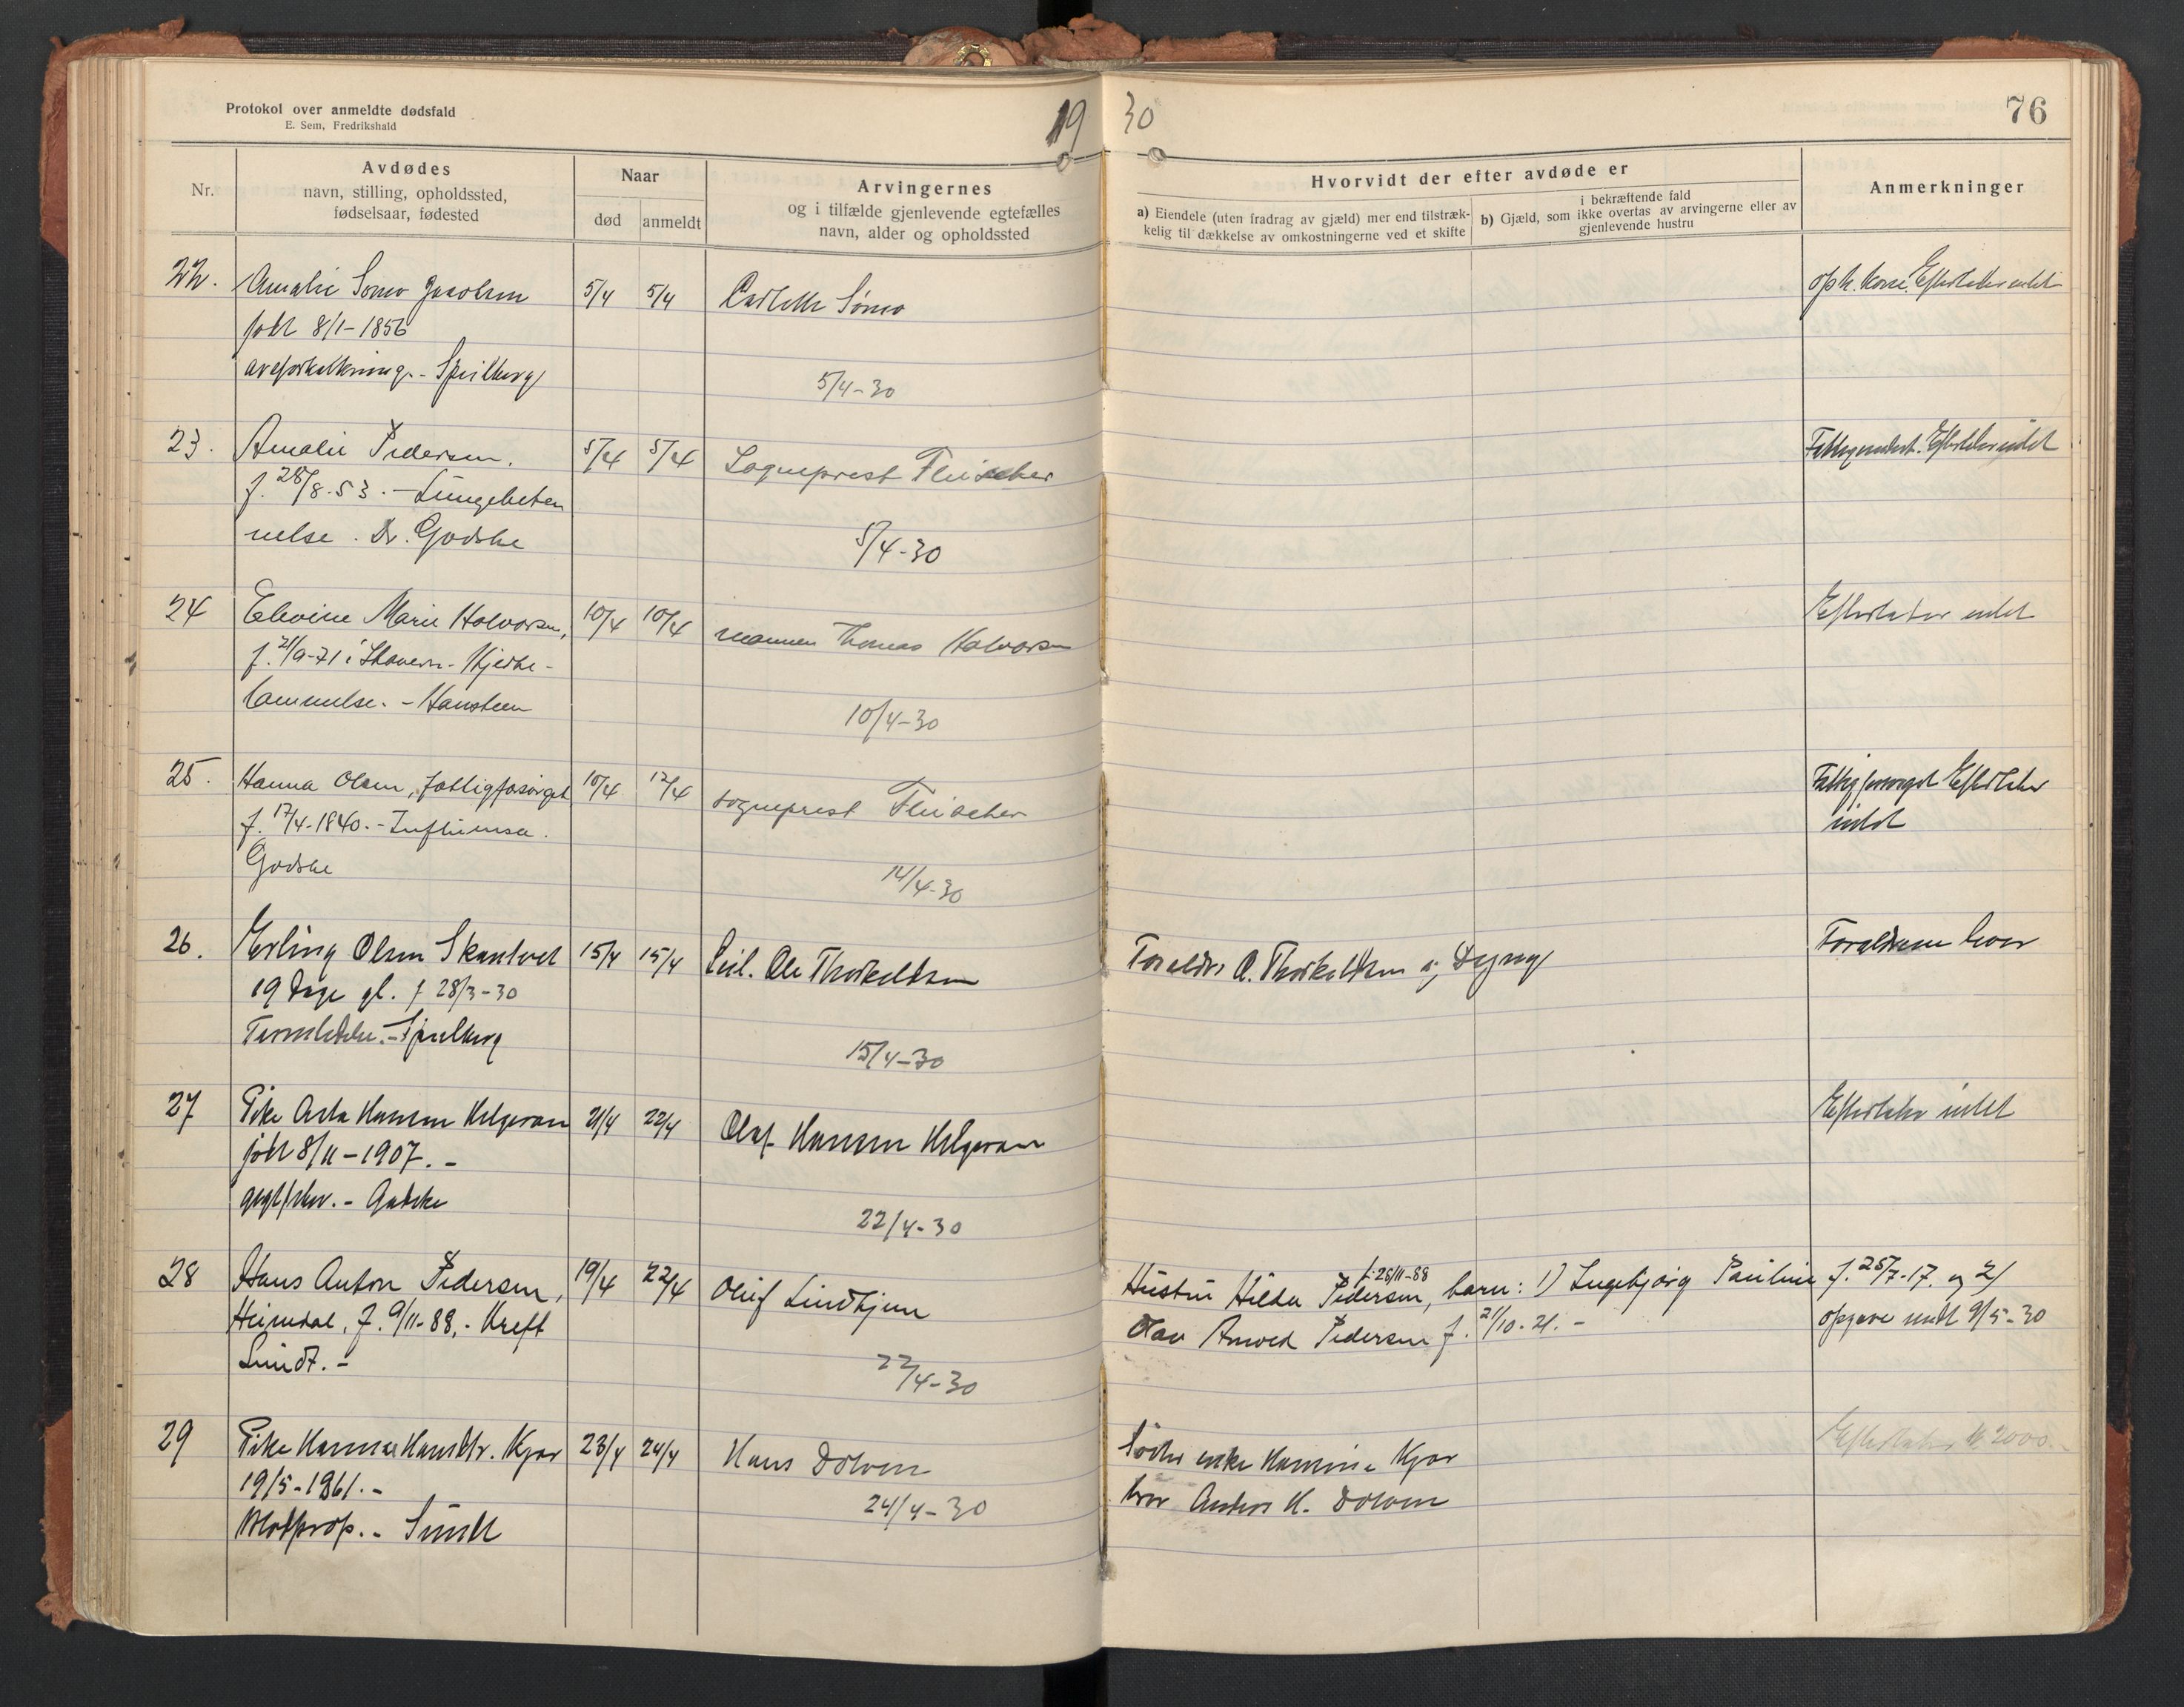 Protokol over anmeldte dødsfald
E. Sem, Fredrikshald
19 30
76
Nr.
Avdødes
navn, stilling, opholdssted,
fødselsaar, fødested
Naar
død anmeldt
Arvingernes
og i tilfælde gjenlevende egtefælles
navn, alder og opholdssted
Hvorvidt der efter avdøde er
a) Eiendele (uten fradrag av gjæld) mer end tilstræk-
kelig til dækkelse av omkostningerne ved et skifte
i bekræftende fald
b) Gjæld, som ikke overtas av arvingerne eller av
gjenlevende hustru
Anmerkninger
22. Amalie Sømo Jacobsen 5/4 5/4 Sømo Efterlater intet
født 8/1-1856
areforkalkning.- Speilberg
5/4-30
23. Amalie Pedersen. 5/4 5/4 Sogneprest Fleischer Efterlater intet
f. 28/8.53.- Lungebeten
nelse. Dr. Godske
5/4-30
24 Elevine Marie Halvorsen, 10/4 10/4 mannen Thomas Halvorsen Efterlater intet
f. 21/9-71 i Stavern.- Hjerte-
lammelse.- Hansteen
10/4-30
25. Hanna Olsen, fattigforsørget 10/4 12/4 sogneprest Fleischer Fattigforsørget Efterlater
intet
f. 17/4-1840.- Influensa.
Godske
14/4-30
26. Erling Olsen Skantvet 15/4 15/4 Ole Thorkeldsen Foreldre O. Thorkeldsen og Dagny Foreldrene lever
19 Dage gl. f 28/3-30
Speilberg
15/4-30
27 Pike Asta Hansen Helgeroa 21/4 22/4 Olaf Hansen Helgeroa Efterlater intet
født 8/11-1907.-
gigtfeber.- Godske
22/4-30
28 Hans Anton Pedersen, 19/4 22/4 Oluf Lindhjem Hustru Hilda Pedersen, f. 26/11-88 barn: 1) Ingebjørg Pauline f. 25/7-17. og 2)
Heimdal, f. 9/11-88,- Kreft Olav Pedersen f. 21/10-21.- opgave sendt 9/5-30
Sundt.-
22/4-30
29 Pike Hansdtr. Kjær 23/4 24/4 Hans Dolven Søster enke Kjær Efterlater kr 2000.-
19/5-1861.- bror Anders H. Dolven
24/4-30
Sundt